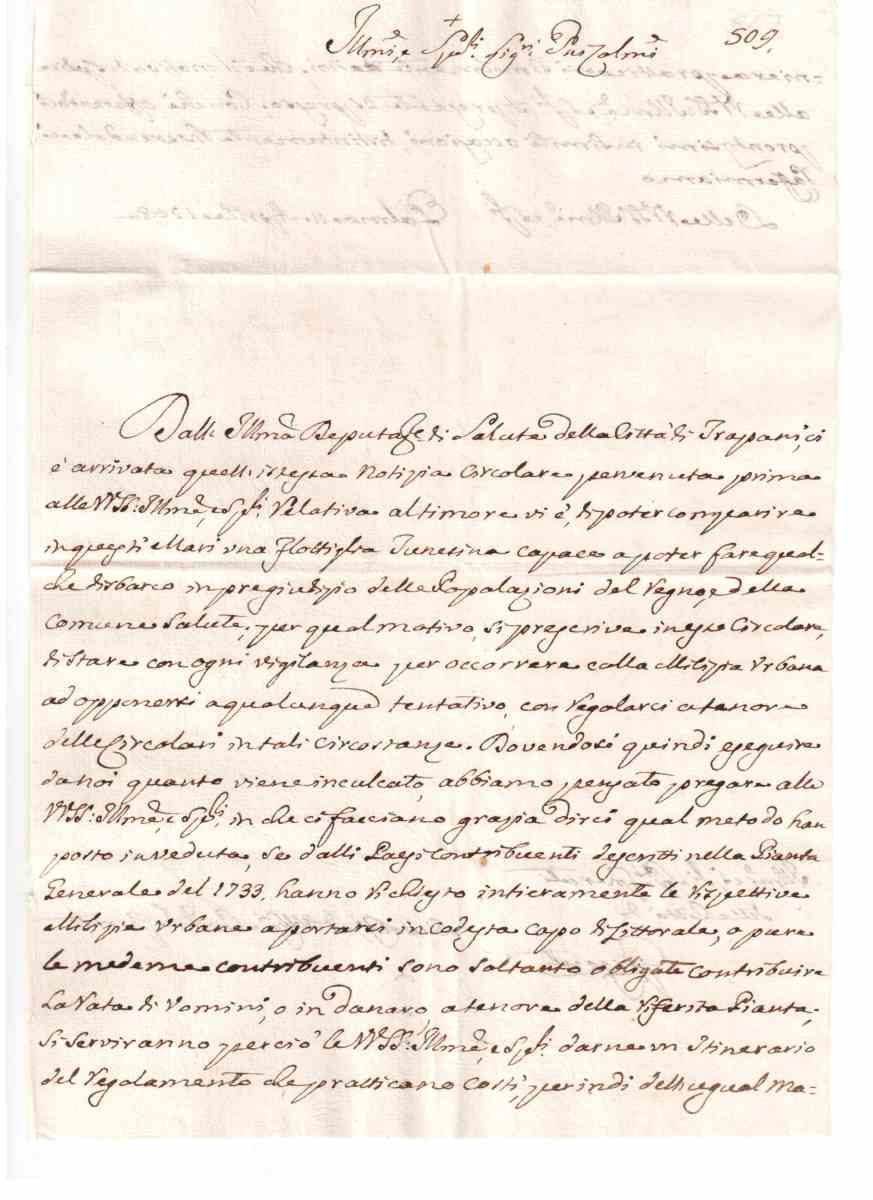 509.
+
Illmi, e Spli. Sigri. Pnī Colmi
Dall' Illma Deputaze di Salute della Città di Trapani, ci
è arrivata quell'istessa Notizia Circolare pervenuta prima
alle VV. SS: Illme, e Spli. relativa al timore vi è, di poter comparire
in questi Mari una Flottiglia Tunesina capace a poter fare qual=
che disbarco in pregiudizio delle Popolazioni del Regno, e della
Comune Salute, per qual motivo, si prescrive in esse Circolare,
di stare con ogni vigilanza per occorrere colla Milizia Urbana
ad opponersi a qualunque tentativo, con regolarci a tenore
delle Circolari in tali circostanze. Dovendosi quindi eseguire
da noi quanto viene inculcato, abbiamo pensato pregare alle
VV. SS: Illme, e Spli, in che ci facciano grazia dirci qual metodo han
posto in veduta, se dalli Paesi Contribuenti descritti nella Pianta
Generale del 1733. hanno richiesto intieramente le rispettive
Milizie Urbane a portarsi in codesta capo di Littorale, o pure
le medeme contribuenti sono soltanto obligate contribuire
La Rata di Uomini, o in danaro, a tenore della riferita Pianta,
Si serviranno perciò le VV. SS: Illme, e Spli. darne un Itinerario
del regolamento che pratticano costì, per indi dell'ugual ma=